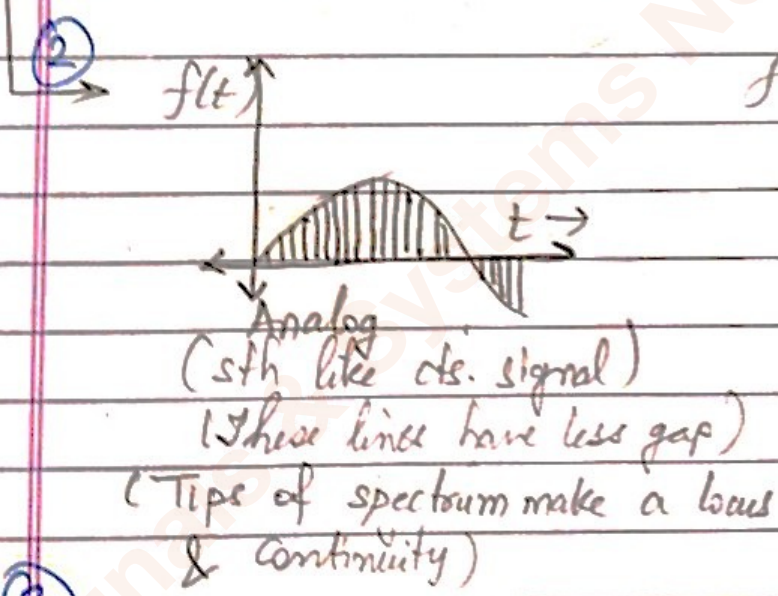 ②
f(t)
f
t →
Analog
(sth like cts. signal)
(These lines have less gap)
(Tips of spectrum make a locus
& Continuity)